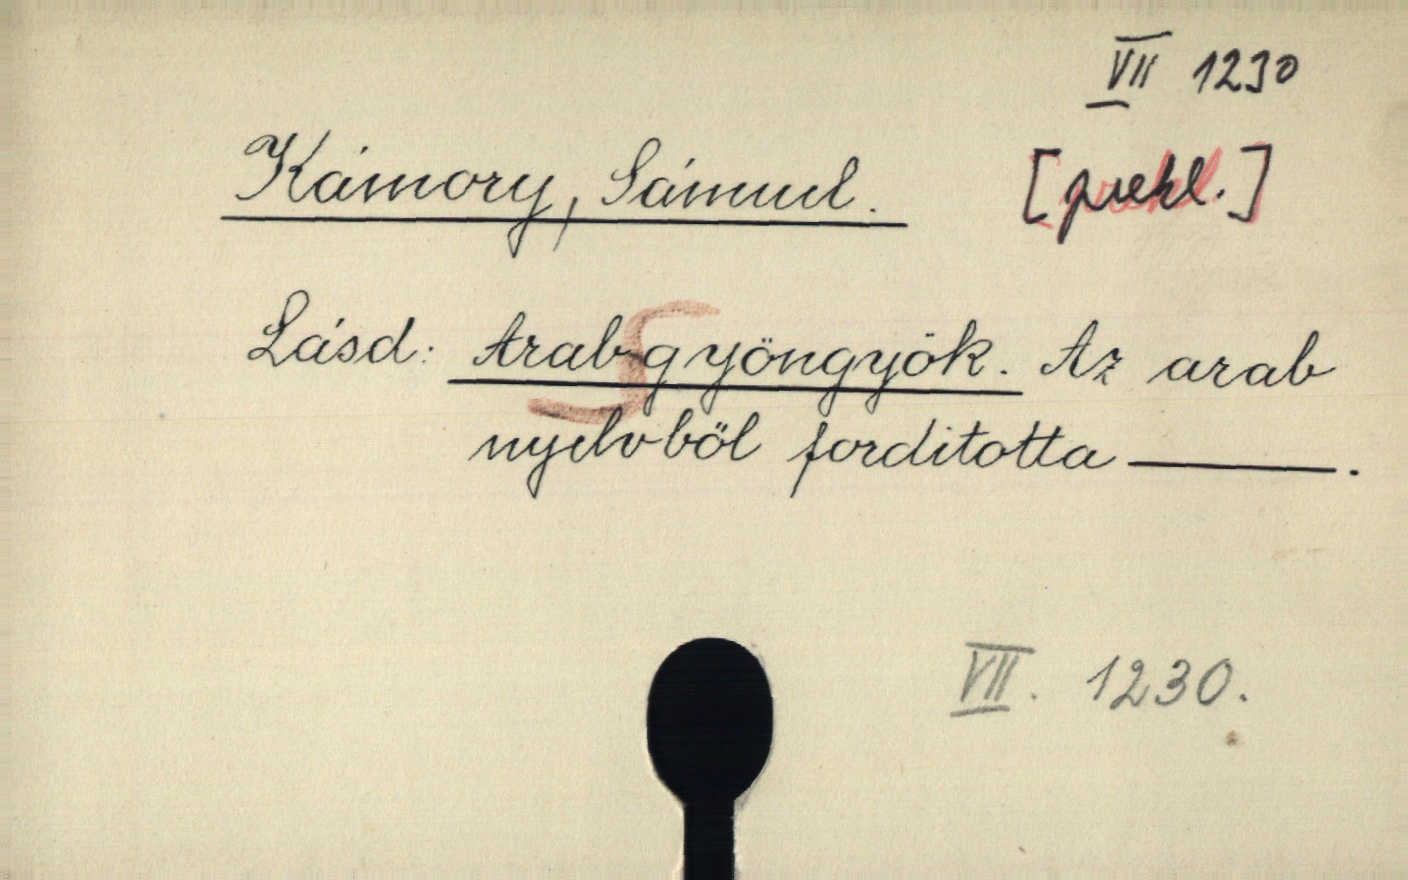 VII 1230
Kámory, Sámuel.
Lásd: Arab gyöngyök. Az arab
nyelvből fordította ———.
VII. 1230.